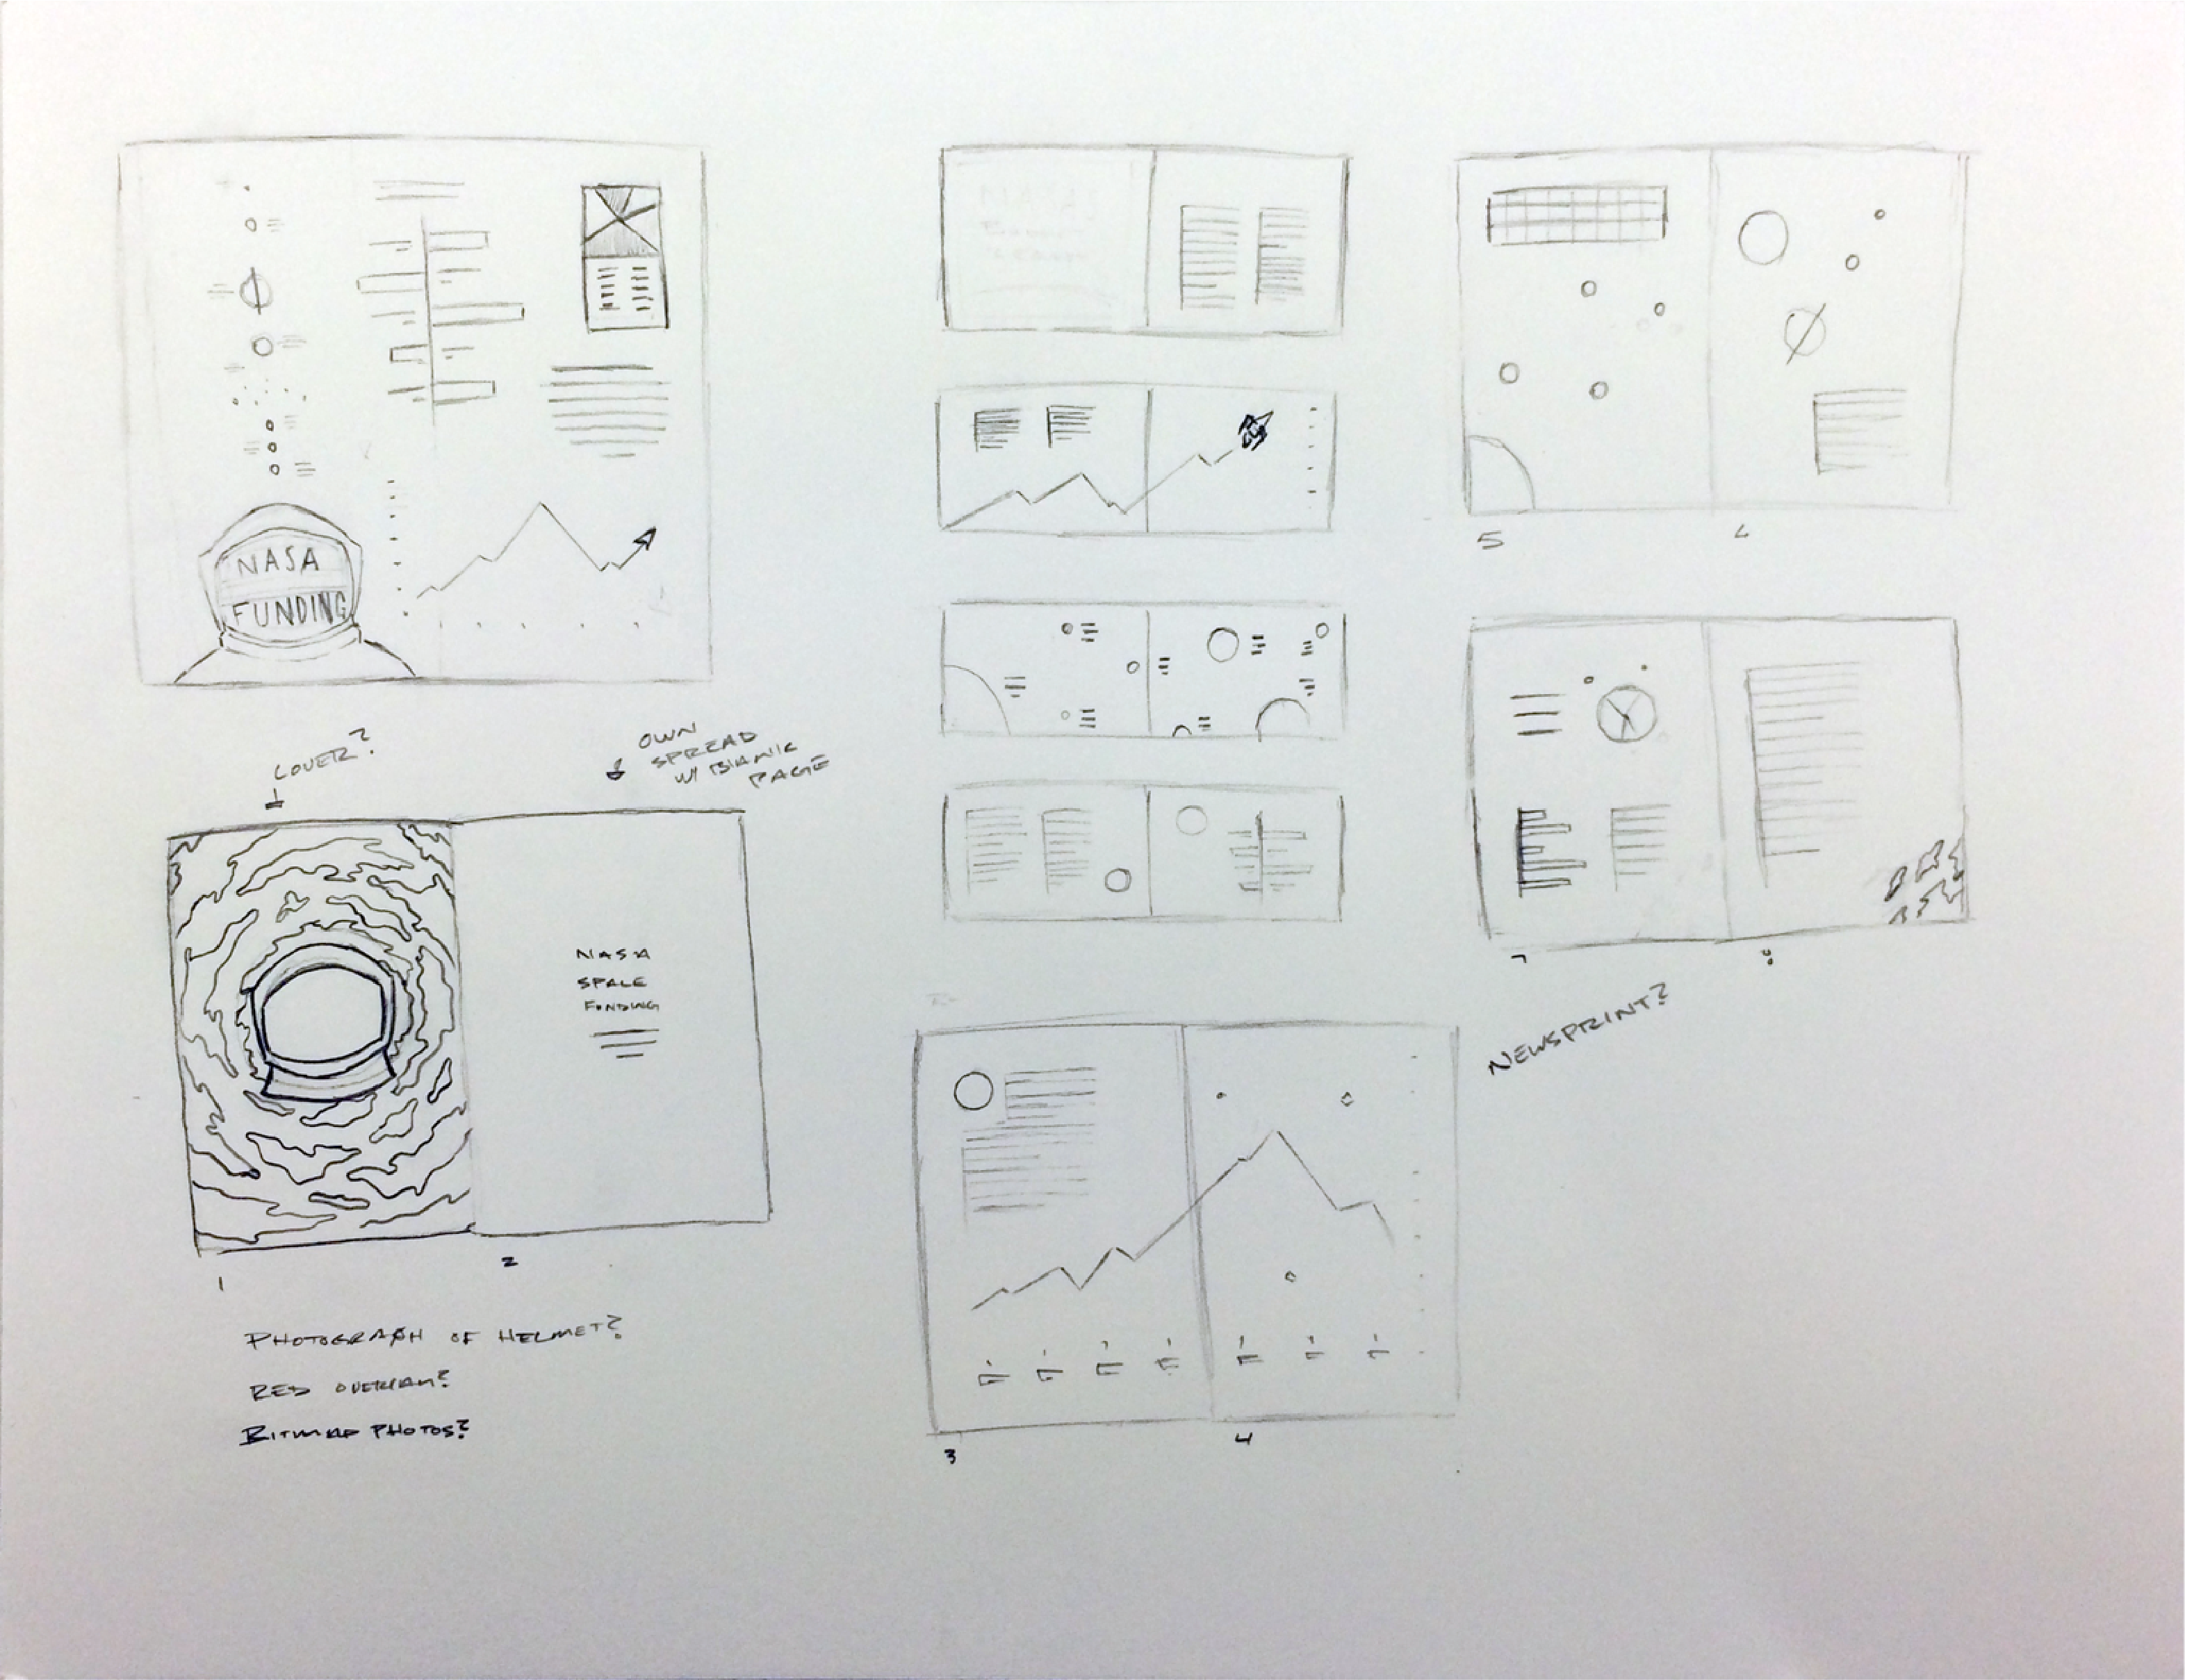 NASA
FUNDING
COVER?
OWN
SPREAD
W/ BLANK
PAGE
NASA
SPACE
FUNDING
1
2
PHOTOGRAPH OF HELMET?
RED OVERLAY?
BITMAP PHOTOS?
3
4
5
6
7
8
NEWSPRINT?